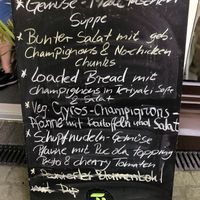 * Gemüse-Maultaschen
Suppe
* Bunter Salat mit geb.
Champignons & Nochicken
chunks
* Loaded Bread mit
champignons in Teriyaki Soße
& Salat
* Veg. Gyros-Champignons-
Pfanne mit Kartoffeln und Salat
* Schupfnudeln-Gemüse
Pfanne mit Rucola topping
Pesto & cherry Tomaten
* Panierter Blumenkohl
mit Dip